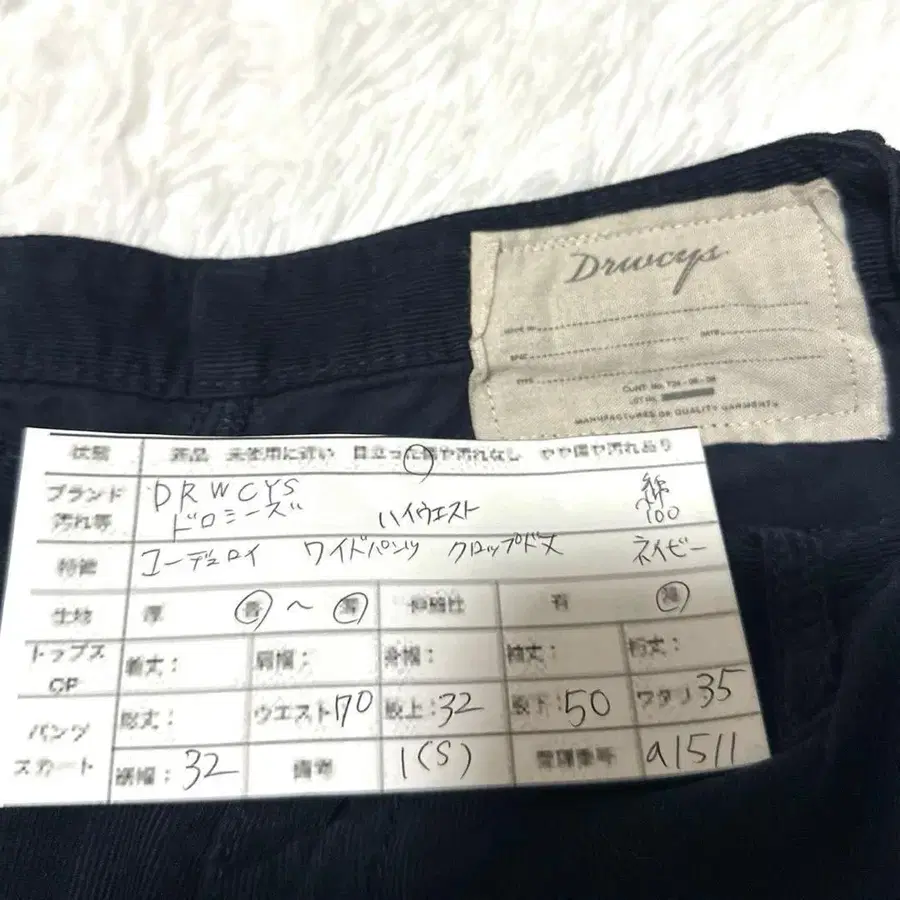 Drwcys
DATE
CUNT. No. 726-08-26
LOT No.
MANUFACTURES OF QUALITY GARMENTS
状態 新品 未使用に近い 目立った傷や汚れなし やや傷や汚れあり
ブランド DRWCYS
汚れ等 ドロシーズ ハイウエスト 綿100
特徴 コーデュロイ ワイドパンツ クロップド丈 ネイビー
生地 厚 普 〜 薄 伸縮性 有 無
トップス 着丈: 肩幅: 身幅: 袖丈: 裄丈:
OP
パンツ 総丈: ウエスト170 股上:32 股下:50 ワタリ35
スカート 裾幅:32 備考 1(S) 管理番号 a1511